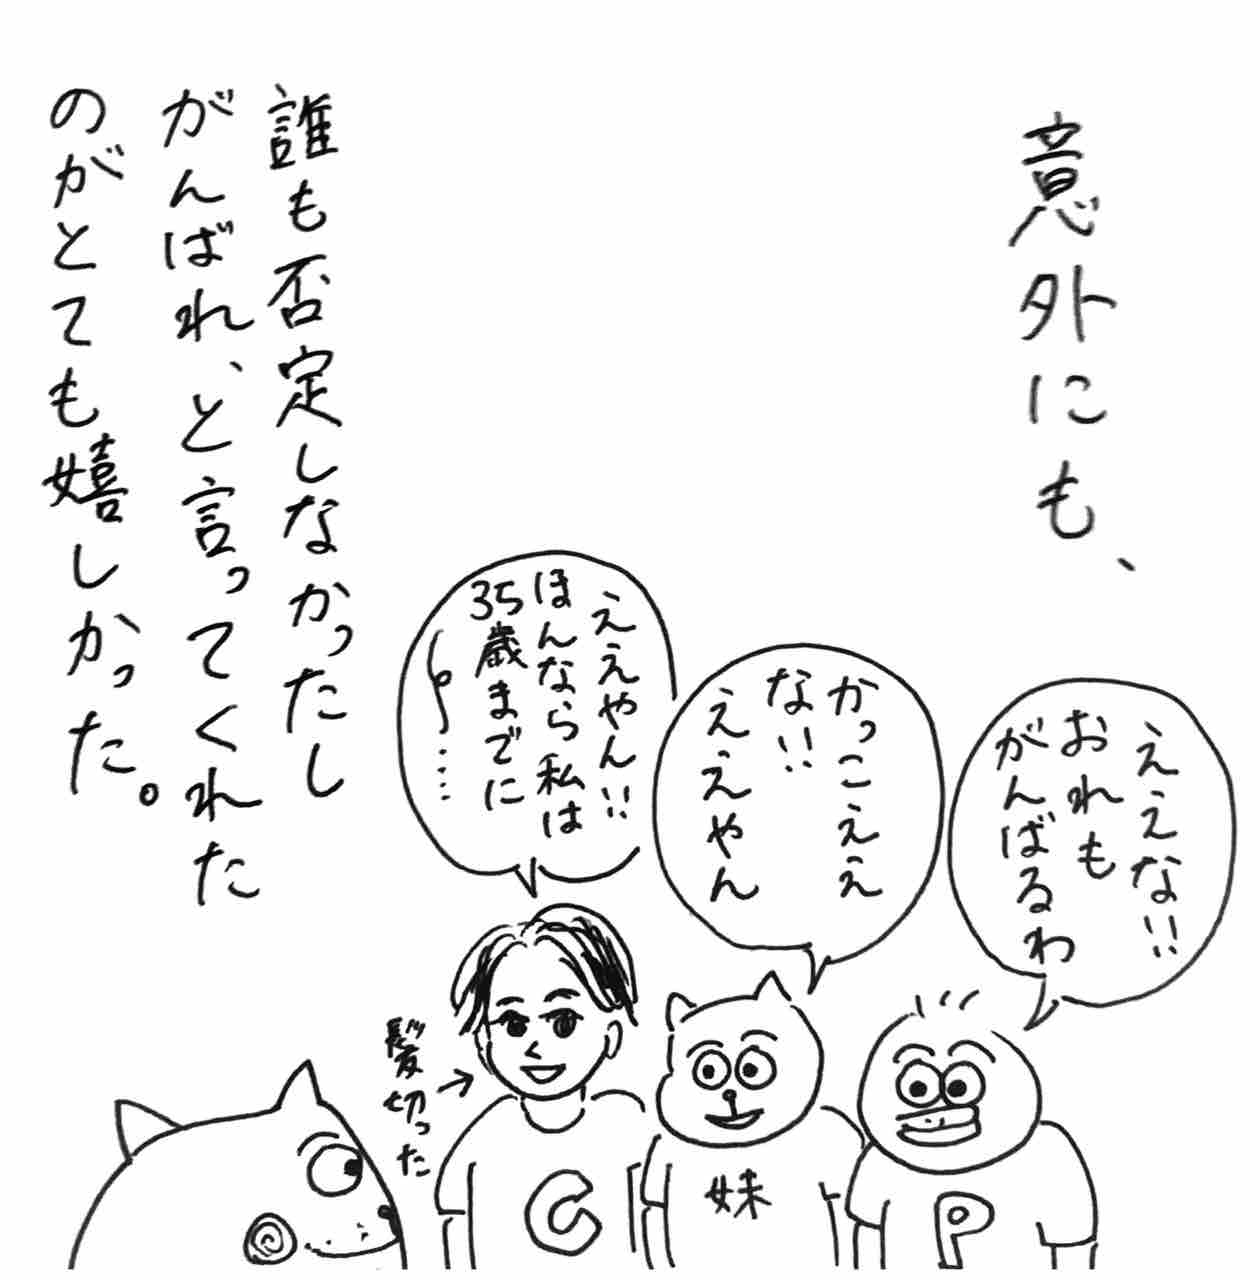 意外にも、
ええな!!
おれも
がんばるわ
かっこええ
な!!
ええやん
ええやん!!
ほんなら私は
35歳までに
……
誰も否定しなかったし
がんばれ、と言ってくれた
のがとても嬉しかった。
髪切った
C
妹
P